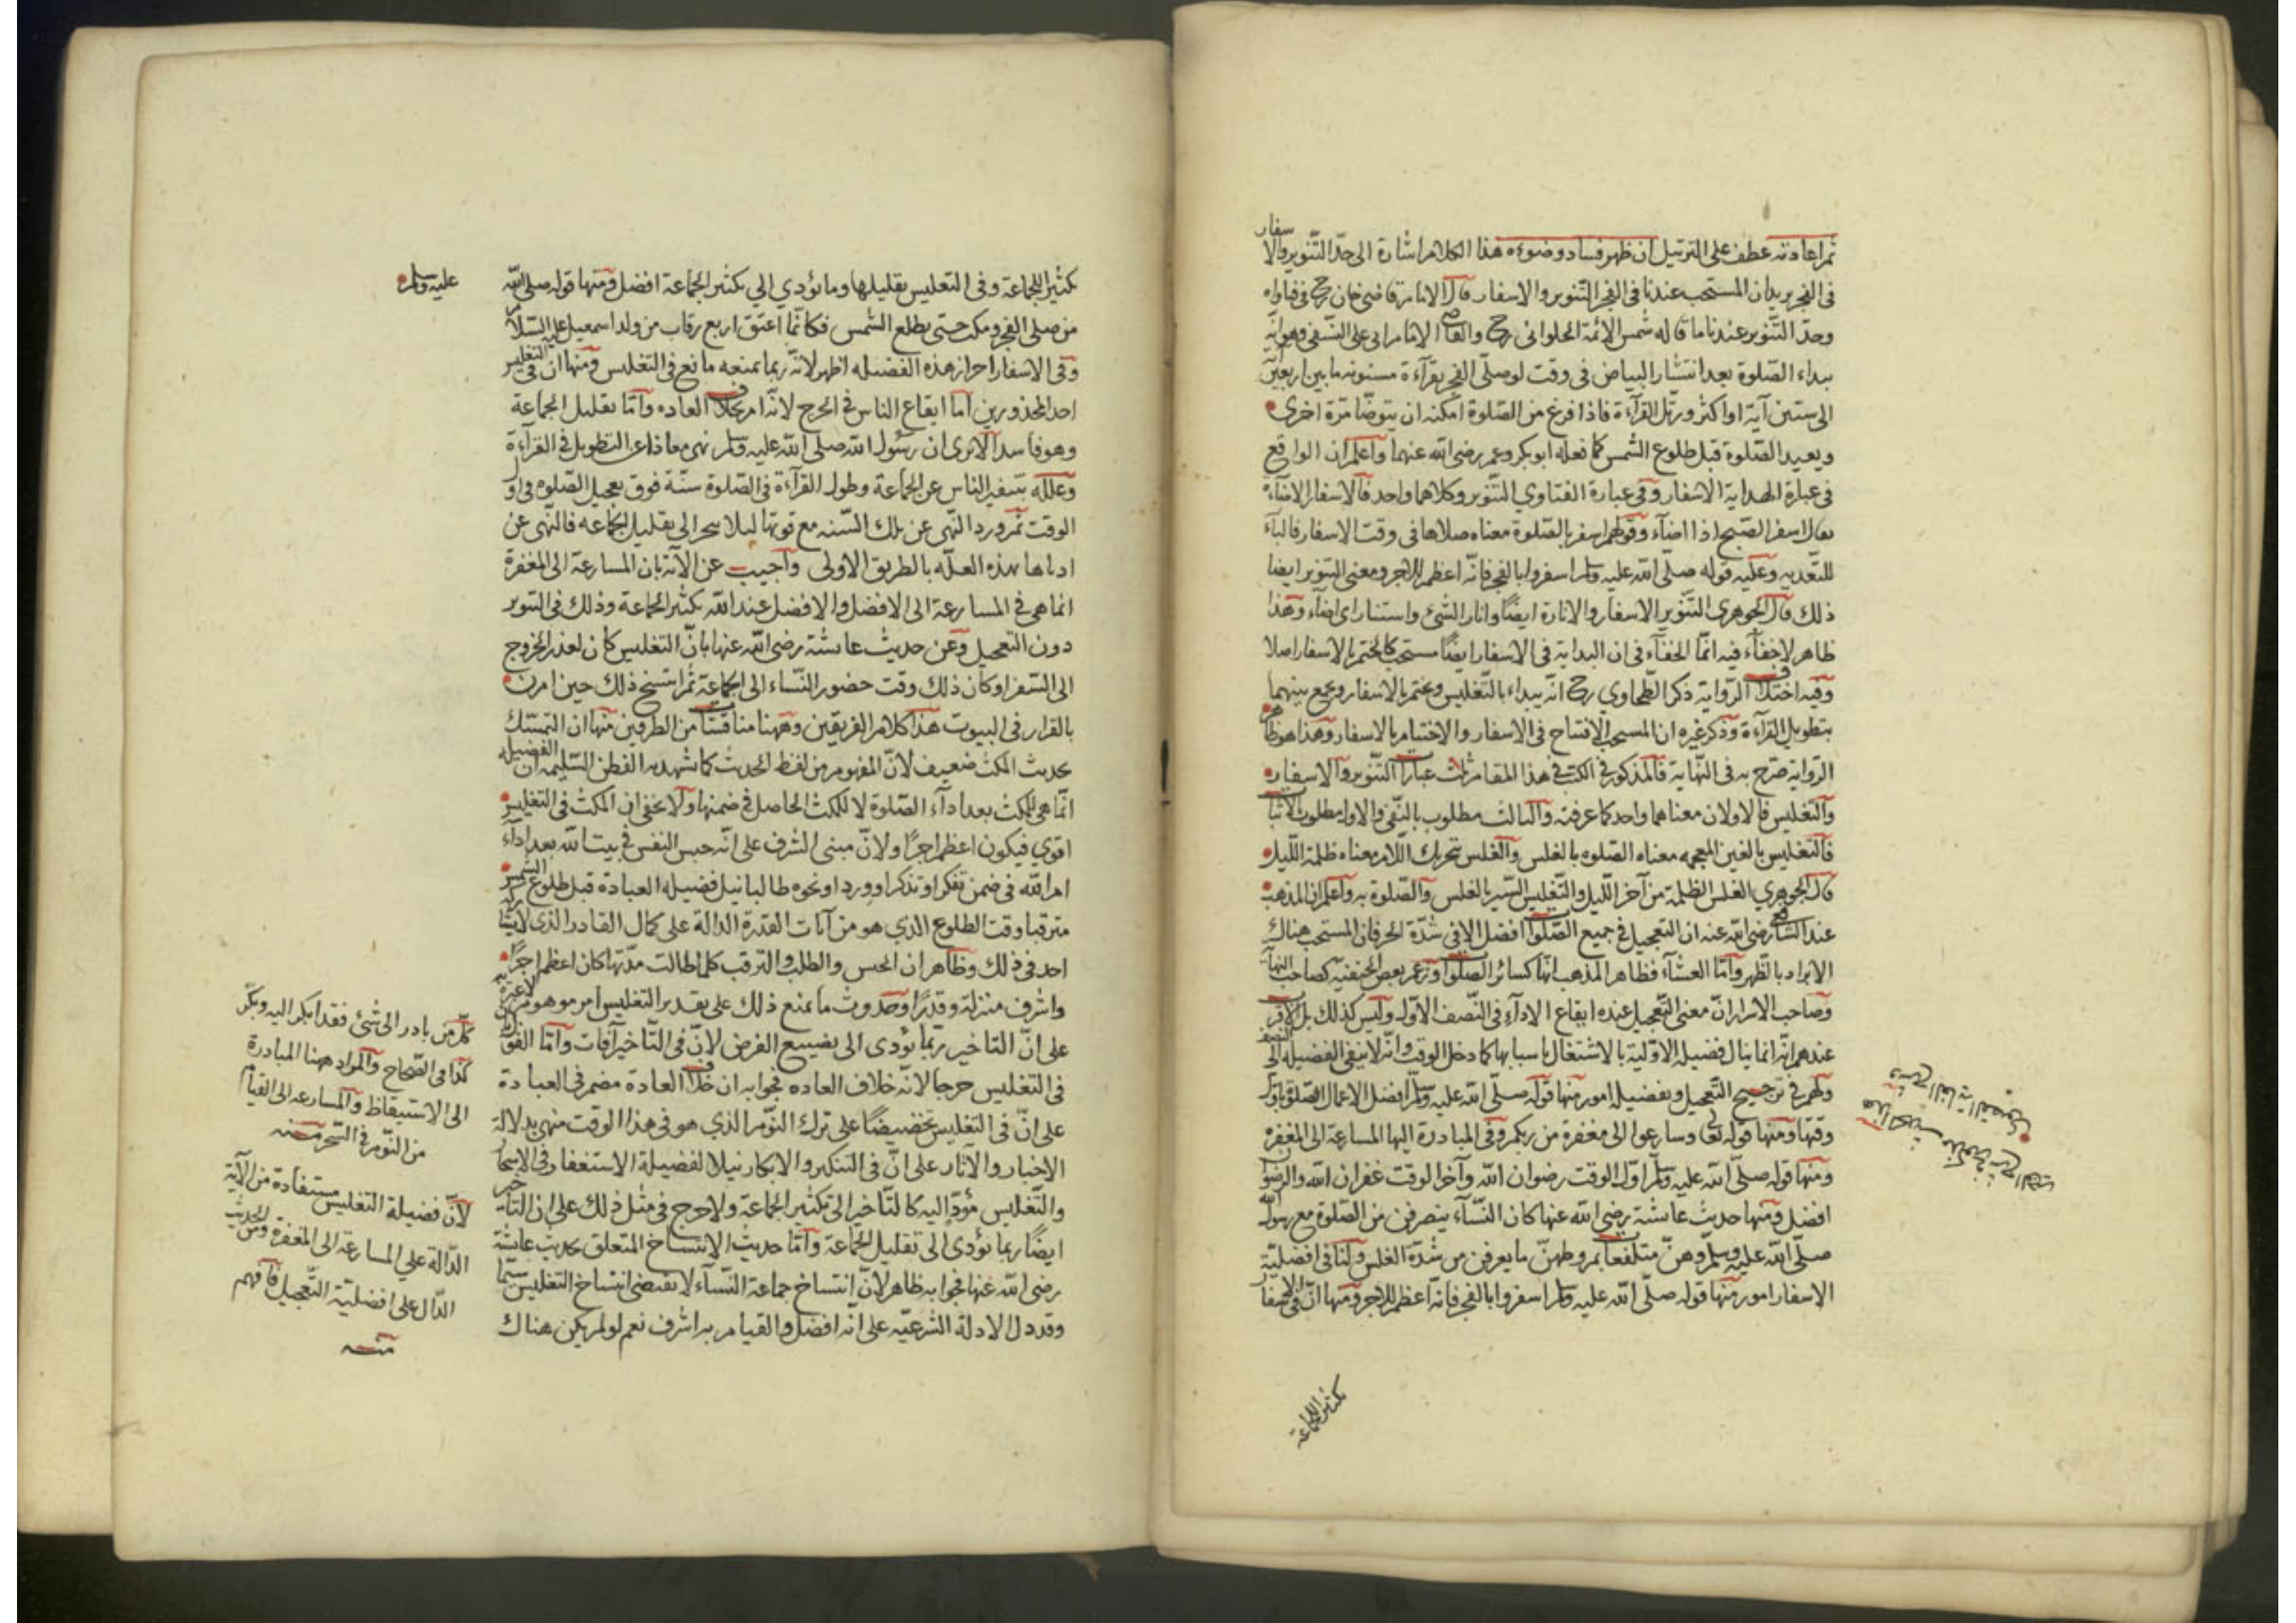 ثم اعادته عطف على الترتيل ان ظهر فساد وضوءه هذا الكلام اشارة الى حدّ التّنوير والاسفار
فى الفجر يريد ان المستحب عندنا فى الفجر التّنوير والاسفار قال الامام قاضى خان رح فى فتاواه
وحدّ التّنوير عندنا ما قاله شمس الائمّة الحلوانى رح والقاضى الامام ابى على النّسفى وهو انّه
يبداء الصّلوة بعد انتشار البياض فى وقت لو صلّى الفجر بقرآءة مسنونه ما بين اربعين
الى ستين آية او اكثر ورتّل القرآءة فاذا فرغ من الصّلوة امكنه ان يتوضّا مرّة اخرى
ويعيد الصّلوة قبل طلوع الشّمس كما فعله ابو بكر وعمر رضى الله عنهما واعلم ان الواقع
فى عبارة الهداية الاسفار وفى عبارة الفتاوي التّنوير وكلاهما واحد فالاسفار الاضآءة
يقال اسفر الصّبح اذا اضآء وقولهم اسفر بالصّلوة معناه صلاها فى وقت الاسفار فالبآء
للتّعديه وعليه قوله صلّى الله عليه وسلم اسفروا بالفجر فانّه اعظم للاجر ومعنى التنوير ايضا
ذلك قال الجوهرى التّنوير الاسفار والانارة ايضًا وانار الشّئ واستنار اى اضاء وهذا
ظاهر لا خفآء فيه انّما الخفآء فى ان البداية فى الاسفار ايضًا مستحب كالختم بالاسفار اصلا
وفيه اختلاف الرّواية ذكر الطّحاوي رح انّه يبداء بالتّغليس ويختم بالاسفار ويجمع بينهما
بتطويل القرآءة وذكر غيره ان المستحب الافتتاح فى الاسفار والاختتام بالاسفار وهذا هو ظاهر
الرّواية صرّح به فى النّهاية فالمذكور فى الكتب فى هذا المقام ثلث عبارات التّنوير والاسفار
والتّغليس فالاولان معناهما واحد كما عرفته والثالث مطلوب بالنّفى والاول مطلوب الاثبات
فالتّغليس بالغين المعجمه معناه الصّلوه بالغلس والغلس بتحريك اللّام معناه ظلمة اللّيل
قال الجوهري الغلس الظّلمة من آخر اللّيل والتّغليس السّير بالغلس والصّلوة به واعلم ان المذهب
عند الشّافعى رضى الله عنه ان التعجيل فى جميع الصّلوات افضل الا فى شدّة الحر فان المستحب هناك
الابراد بالظّهر وامّا العشآء فظاهر المذهب انّها كسائر الصّلوات وزعم بعض الحنفيّه كصاحب النهاية
وصاحب الاسرار انّ معنى التّعجيل عنده ايقاع الادآء فى النّصف الاوّل وليس كذلك بل الاقرب
عندهم انّه انما ينال فضيلة الاوّلية بالاشتغال باسبابها كما دخل الوقت وانّه لا يبقى الفضيله الى النصف
ولهم فى ترجيح التّعجيل وتفضيله امور منها قوله صلّى الله عليه وسلّم افضل الاعمال الصّلوة باوّل
وقتها ومنها قوله تعالى وسارعوا الى مغفرة من ربكم وفى المبادرة اليها المسارعة الى المغفره
ومنها قوله صلّى الله عليه وسلّم اوّل الوقت رضوان الله وآخر الوقت غفران الله والرضوان
افضل ومنها حديث عائشة رضى الله عنها كان النّسآء ينصرفن من الصّلوة مع رسول الله
صلّى الله عليه وسلّم وهنّ متلفعات بمروطهنّ ما يعرفن من شدّة الغلس ولنا فى افضليّة
الاسفار امور منها قوله صلّى الله عليه وسلم اسفروا بالفجر فانّه اعظم للاجر ومنها انّ فى الاسفار
تكثير الجماعة
تكثير الجماعة وفى التغليس تقليلها وما يؤدي الى تكثير الجماعة افضل ومنها قوله صلى الله
عليه وسلم
من صلى الفجر ومكث حتى يطلع الشّمس فكانّما اعتق اربع رقاب من ولد اسمعيل عليه السّلام
وفى الاسفار احراز هذه الفضيله اظهر لانّه ربما يمنعه مانع فى التغليس ومنها ان فى التغليس
احد المحذورين اما ايقاع الناس فى الحرج لانّه امر بخلاف العاده وامّا تقليل الجماعة
وهو فاسد الا ترى ان رسول الله صلى الله عليه وسلم نهى معاذا عن التطويل فى القرآءة
وعلله بتنفير الناس عن الجماعة وطول القرآءة فى الصّلوة سنّة فوق تعجيل الصّلوه فى اول
الوقت ثم ورد النّهى عن تلك السّنه مع قوتها ليلا ينجر الى تقليل الجماعه فالنّهى عن
ادناها بهذه العلّه بالطريق الاولى واجيب عن الآية بان المسارعة الى المغفرة
انما هى فى المسارعة الى الافضل والافضل عند الله تكثير الجماعة وذلك فى التنوير
دون التعجيل وعن حديث عائشة رضى الله عنها بانّ التغليس كان لعذر الخروج
الى السّفر او كان ذلك وقت حضور النّساء الى الجماعة ثم انتسخ ذلك حين امرن
بالقرار فى البيوت هذا كلام الفريقين وههنا مناقشات من الطرفين منها ان التمسّك
بحديث المكث ضعيف لانّ المفهوم من لفظ الحديث كما تشهد به الفطن السّليمه ان الفضيله
انّما هى للمكث بعد ادآء الصّلوة لا للمكث الحاصل فى ضمنها ولا يخفى ان المكث فى التغليس
اقوي فيكون اعظم اجرًا ولانّ مبنى الشرف على انّه حبس النفس فى بيت الله بعد ادآء
امر الله فى ضمن تفكر او تذكر او ورد او نحوه طالبا نيل فضيله العبادة قبل طلوع الشمس
مترقبا وقت الطلوع الذي هو من آيات القدرة الدالة على كمال القادر الذى لا يشاركه
احد فى ذلك وظاهر ان الحبس والطلب والترقب كلما طالت مدّتها كان اعظم اجرًا
واشرف منزلة وقدرًا وحدوث ما يمنع ذلك على تقدير التغليس امر موهوم لا عبرة به
على انّ التاخير ربّما يؤدى الى تضييع الفرض لانّ فى التّاخير آفات وامّا القول بان
فى التغليس حرجا لانّه خلاف العاده فجوابه ان خلاف العادة مضمر فى العبادة
على انّ فى التغليس تخضيضًا على ترك النّوم الذي هو فى هذا الوقت منهى بدلالة
الاخبار والآثار على انّ فى التبكير والابكار نيلا لفضيلة الاستغفار فى الاسحار
والتّغليس مؤدّ اليه كالتّاخير الى تكثير الجماعة ولا حرج فى مثل ذلك على ان التاخير
ايضًا ربما يؤدى الى تقليل الجماعة وامّا حديث الانتساخ المتعلق بحديث عائشة
رضى الله عنها فجوابه ظاهر لانّ انتساخ جماعة النّسآء لا يقتضى انتساخ التغليس سيّما
وقد دل الادلة الشرعيّه على انّه افضل والقيام به اشرف نعم لو لم يكن هناك
كلّ من بادر الى شئ فقد ابكر اليه وبكّر
كذا فى الصّحاح والمراد ههنا المبادرة
الى الاستيقاظ والمسارعه الى القيام
من النّوم فى السّحر منه
لانّ فضيلة التغليس مستفادة من الآية
الدّالة على المسارعة الى المغفرة ومن الحديث
الدّال على افضلية التّعجيل فافهم
منه